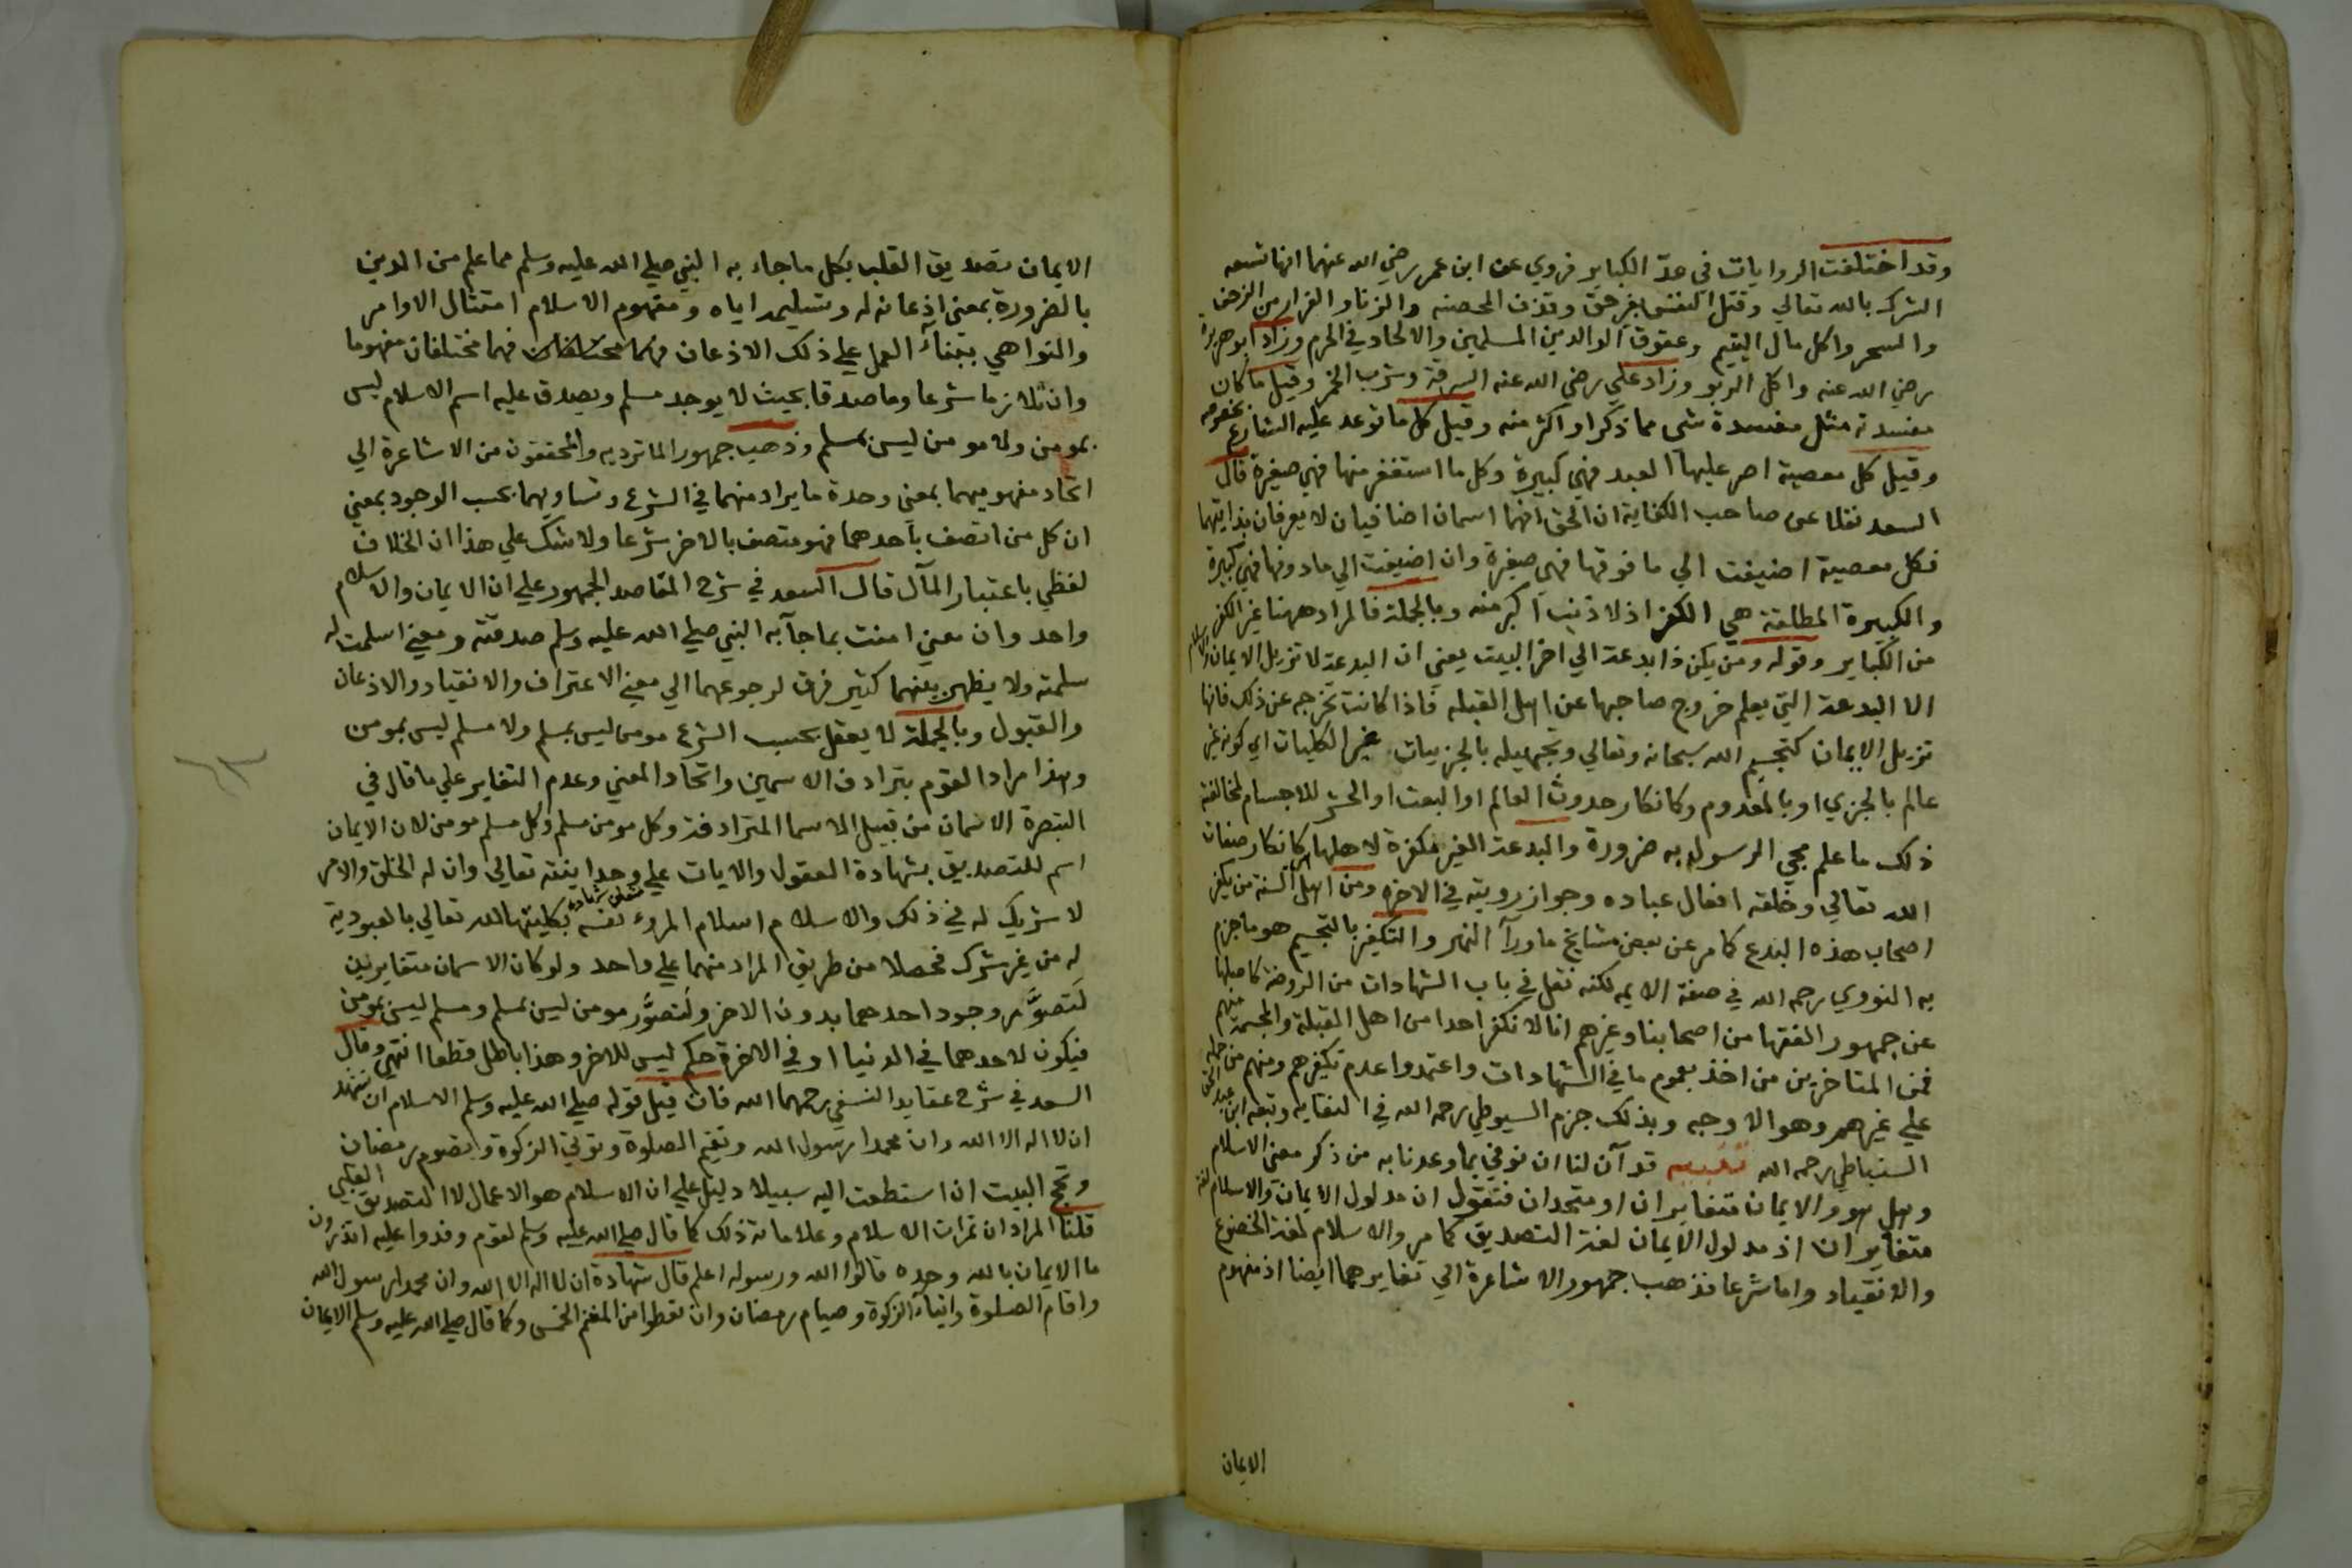 وقد اختلفت الروايات في عدّ الكباير فروي عن ابن عمر رضي الله عنهما انها تسعه
الشرك بالله تعالي وقتل النفس بغير حق وقذف المحصنه والزنا والفرار من الزحف
والسحر واكل مال اليتيم وعقوق الوالدين المسلمين والالحاد في الحرم وزاد ابو هريرة
رضي الله عنه واكل الربو وزاد علي رضي الله عنه السرقة وشرب الخمر وقيل ما كان
مفسدته مثل مفسدة شى مما ذكر او اكثر منه وقيل كل ما توعد عليه الشارع بخصوصه
وقيل كل معصية اصر عليها العبد فهي كبيرة وكل ما استغفر منها فهي صغيرة قال
السعد نقلا عن صاحب الكفاية ان الحق انهما اسمان اضافيان لا يعرفان بذاتيهما
فكل معصية اضيفت الي ما فوقها فهي صغيرة وان اضيفت الي ما دونها فهي كبيرة
والكبيرة المطلقة هي الكفر اذ لا ذنب اكبر منه وبالجملة فالمراد ههنا غير الكفر
من الكباير وقوله ومن يكن ذا بدعة الي اخر البيت يعني ان البدعة لا تزيل الايمان والاسلام
الا البدعة التي يعلم خروج صاحبها عن اهل القبله فاذا كانت تخرجه عن ذلك فانها
تزيل الايمان كتجسيم الله سبحانه وتعالي وتجهيله بالجزييات غير الكليات اي كونه غير
عالم بالجزي او بالمعدوم وكانكار حدوث العالم او البعث او الحشر للاجسام لمخالفة
ذلك ما علم مجي الرسول به ضرورة والبدعة الغير مكفرة لاهلها كانكار صفات
الله تعالي وخلقه افعال عباده وجواز رويته في الاخره ومن اهل السنة من يكفر
اصحاب هذه البدع كما مر عن بعض مشايخ ماورآ النهر والتكفير بالتجسيم هو ما جزم
به النووي رحمه الله في صفة الايمه لكنه نقل في باب الشهادات من الروضة كاصلها
عن جمهور الفقها من اصحابنا وغيرهم انا لا نكفر احدا من اهل القبلة والمجسمة منهم
فمن المتاخرين من اخذ بعموم ما في الشهادات واعتمدوا عدم تكفيرهم ومنهم من حمله
علي غيرهم وهو الاوجه وبذلك جزم السيوطي رحمه الله في النقايه وتبعه ابن عبد الحق
السنباطي رحمه الله تنبيه قد آن لنا ان نوفي بما وعدنا به من ذكر معنى الاسلام
وهل هو والايمان متغايران او متحدان فنقول ان مدلول الايمان والاسلام لغة
متغايران اذ مدلول الايمان لغة التصديق كما مر والاسلام لغة الخضوع
والانقياد واما شرعا فذهب جمهور الاشاعرة الي تغايرهما ايضا اذ مفهوم
الايمان
الايمان تصديق القلب بكل ما جاء به النبي صلي الله عليه وسلم مما علم من الدين
بالضرورة بمعنى اذعانه له وتسليمه اياه ومفهوم الاسلام امتثال الاوامر
والنواهي ببناء العمل علي ذلك الاذعان فهما مختلفان مفهوما
وان تلازما شرعا وما صدقا بحيث لا يوجد مسلم ويصدق عليه اسم الاسلام ليس
بمومن ولا مومن ليس بمسلم وذهب جمهور الماتريديه والمحققون من الاشاعرة الي
اتحاد مفهوميهما بمعنى وحدة ما يراد منهما في الشرع وتساويهما بحسب الوجود بمعني
ان كل من اتصف باحدهما فهو متصف بالاخر شرعا ولا شك علي هذا ان الخلاف
لفظي باعتبار المآل قال السعد في شرح المقاصد الجمهور علي ان الايمان والاسلام
واحد وان معني امنت بما جآ به النبي صلي الله عليه وسلم صدقته ومعني اسلمت له
سلمته ولا يظهر بينهما كثير فرق لرجوعهما الي معني الاعتراف والانقياد والاذعان
والقبول وبالجملة لا يعقل بحسب الشرع مومن ليس بمسلم ولا مسلم ليس بمومن
وهذا مراد القوم بترادف الاسمين واتحاد المعني وعدم التغاير علي ما قال في
التبصرة الاسمان من قبيل الاسما المترادفة وكل مومن مسلم وكل مسلم مومن لان الايمان
اسم للتصديق بشهادة العقول والايات علي وحدانيته تعالي وان له الخلق والامر
لا شريك له في ذلك والاسلام اسلام المرء نفسه بكليتها لله تعالي بالعبودية
له من غير شرك فحصلا من طريق المراد منهما علي واحد ولو كان الاسمان متغايرين
لتصوّر وجود احدهما بدون الاخر ولتصوّر مومن ليس بمسلم ومسلم ليس بمومن
فيكون لاحدهما في الدنيا او في الاخرة حكم ليس للاخر وهذا باطل قطعا انتهي وقال
السعد في شرح عقايد النسفي رحمهما الله فان قيل قوله صلي الله عليه وسلم الاسلام ان تشهد
ان لا اله الا الله وان محمدا رسول الله وتقيم الصلوة وتوتي الزكوة وتصوم رمضان
وتحج البيت ان استطعت اليه سبيلا دليل علي ان الاسلام هو الاعمال لا التصديق القلبي
قلنا المراد ان ثمرات الاسلام وعلاماته ذلك كما قال صلي الله عليه وسلم لقوم وفدوا عليه اتدرون
ما الايمان بالله وحده قالوا الله ورسوله اعلم قال شهادة ان لا اله الا الله وان محمدا رسول الله
واقام الصلوة وايتاء الزكوة وصيام رمضان وان تعطوا من المغنم الخمس وكما قال صلي الله عليه وسلم الايمان